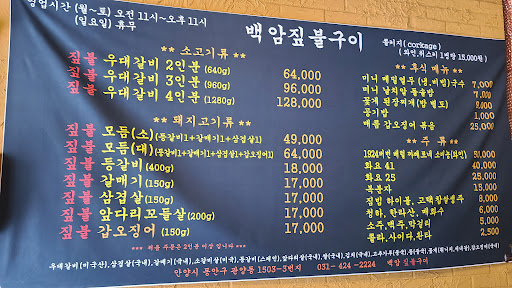 영업시간 (월~토) 오전 11시~오후 11시
(일요일) 휴무
백암짚불구이
콜키지( corkage )
( 와인.위스키 1병당 15,000원 )
** 소고기류 **
짚불 우대갈비 2인분 (640g) 64,000
짚불 우대갈비 3인분 (960g) 96,000
짚불 우대갈비 4인분 (1280g) 128,000
** 돼지고기류 **
짚불 모듬(소) (등갈비1+갈매기1+삼겹살1) 49,000
짚불 모듬(대) (등갈비1+갈매기1+삼겹살1+갑오징어1) 64,000
짚불 등갈비 (400g) 18,000
짚불 갈매기 (150g) 17,000
짚불 삼겹살 (150g) 17,000
짚불 앞다리꼬들살(200g) 17,000
짚불 갑오징어 (150g) 17,000
*** 처음 주문은 2인분 이상 입니다 ***
** 후식 메뉴 **
미니 메밀열무 (냉,비빔)국수 7,000
미니 날치알 돌솥밥 7,000
꽃게 된장찌개 (밥 별도)
공기밥 1,000
매콤 갑오징어 볶음 25,000
** 주 류 **
화요 41 40,000
화요 25 25,000
복분자 15,000
짐빔 하이볼, 고택찹쌀생주 8,000
청하, 한라산, 매화수 6,000
소주,맥주,막걸리 5,000
콜라,사이다,환타 2,500
안양시 동안구 관양동 1503-3번지 031- 424 -2224 백암 짚불구이